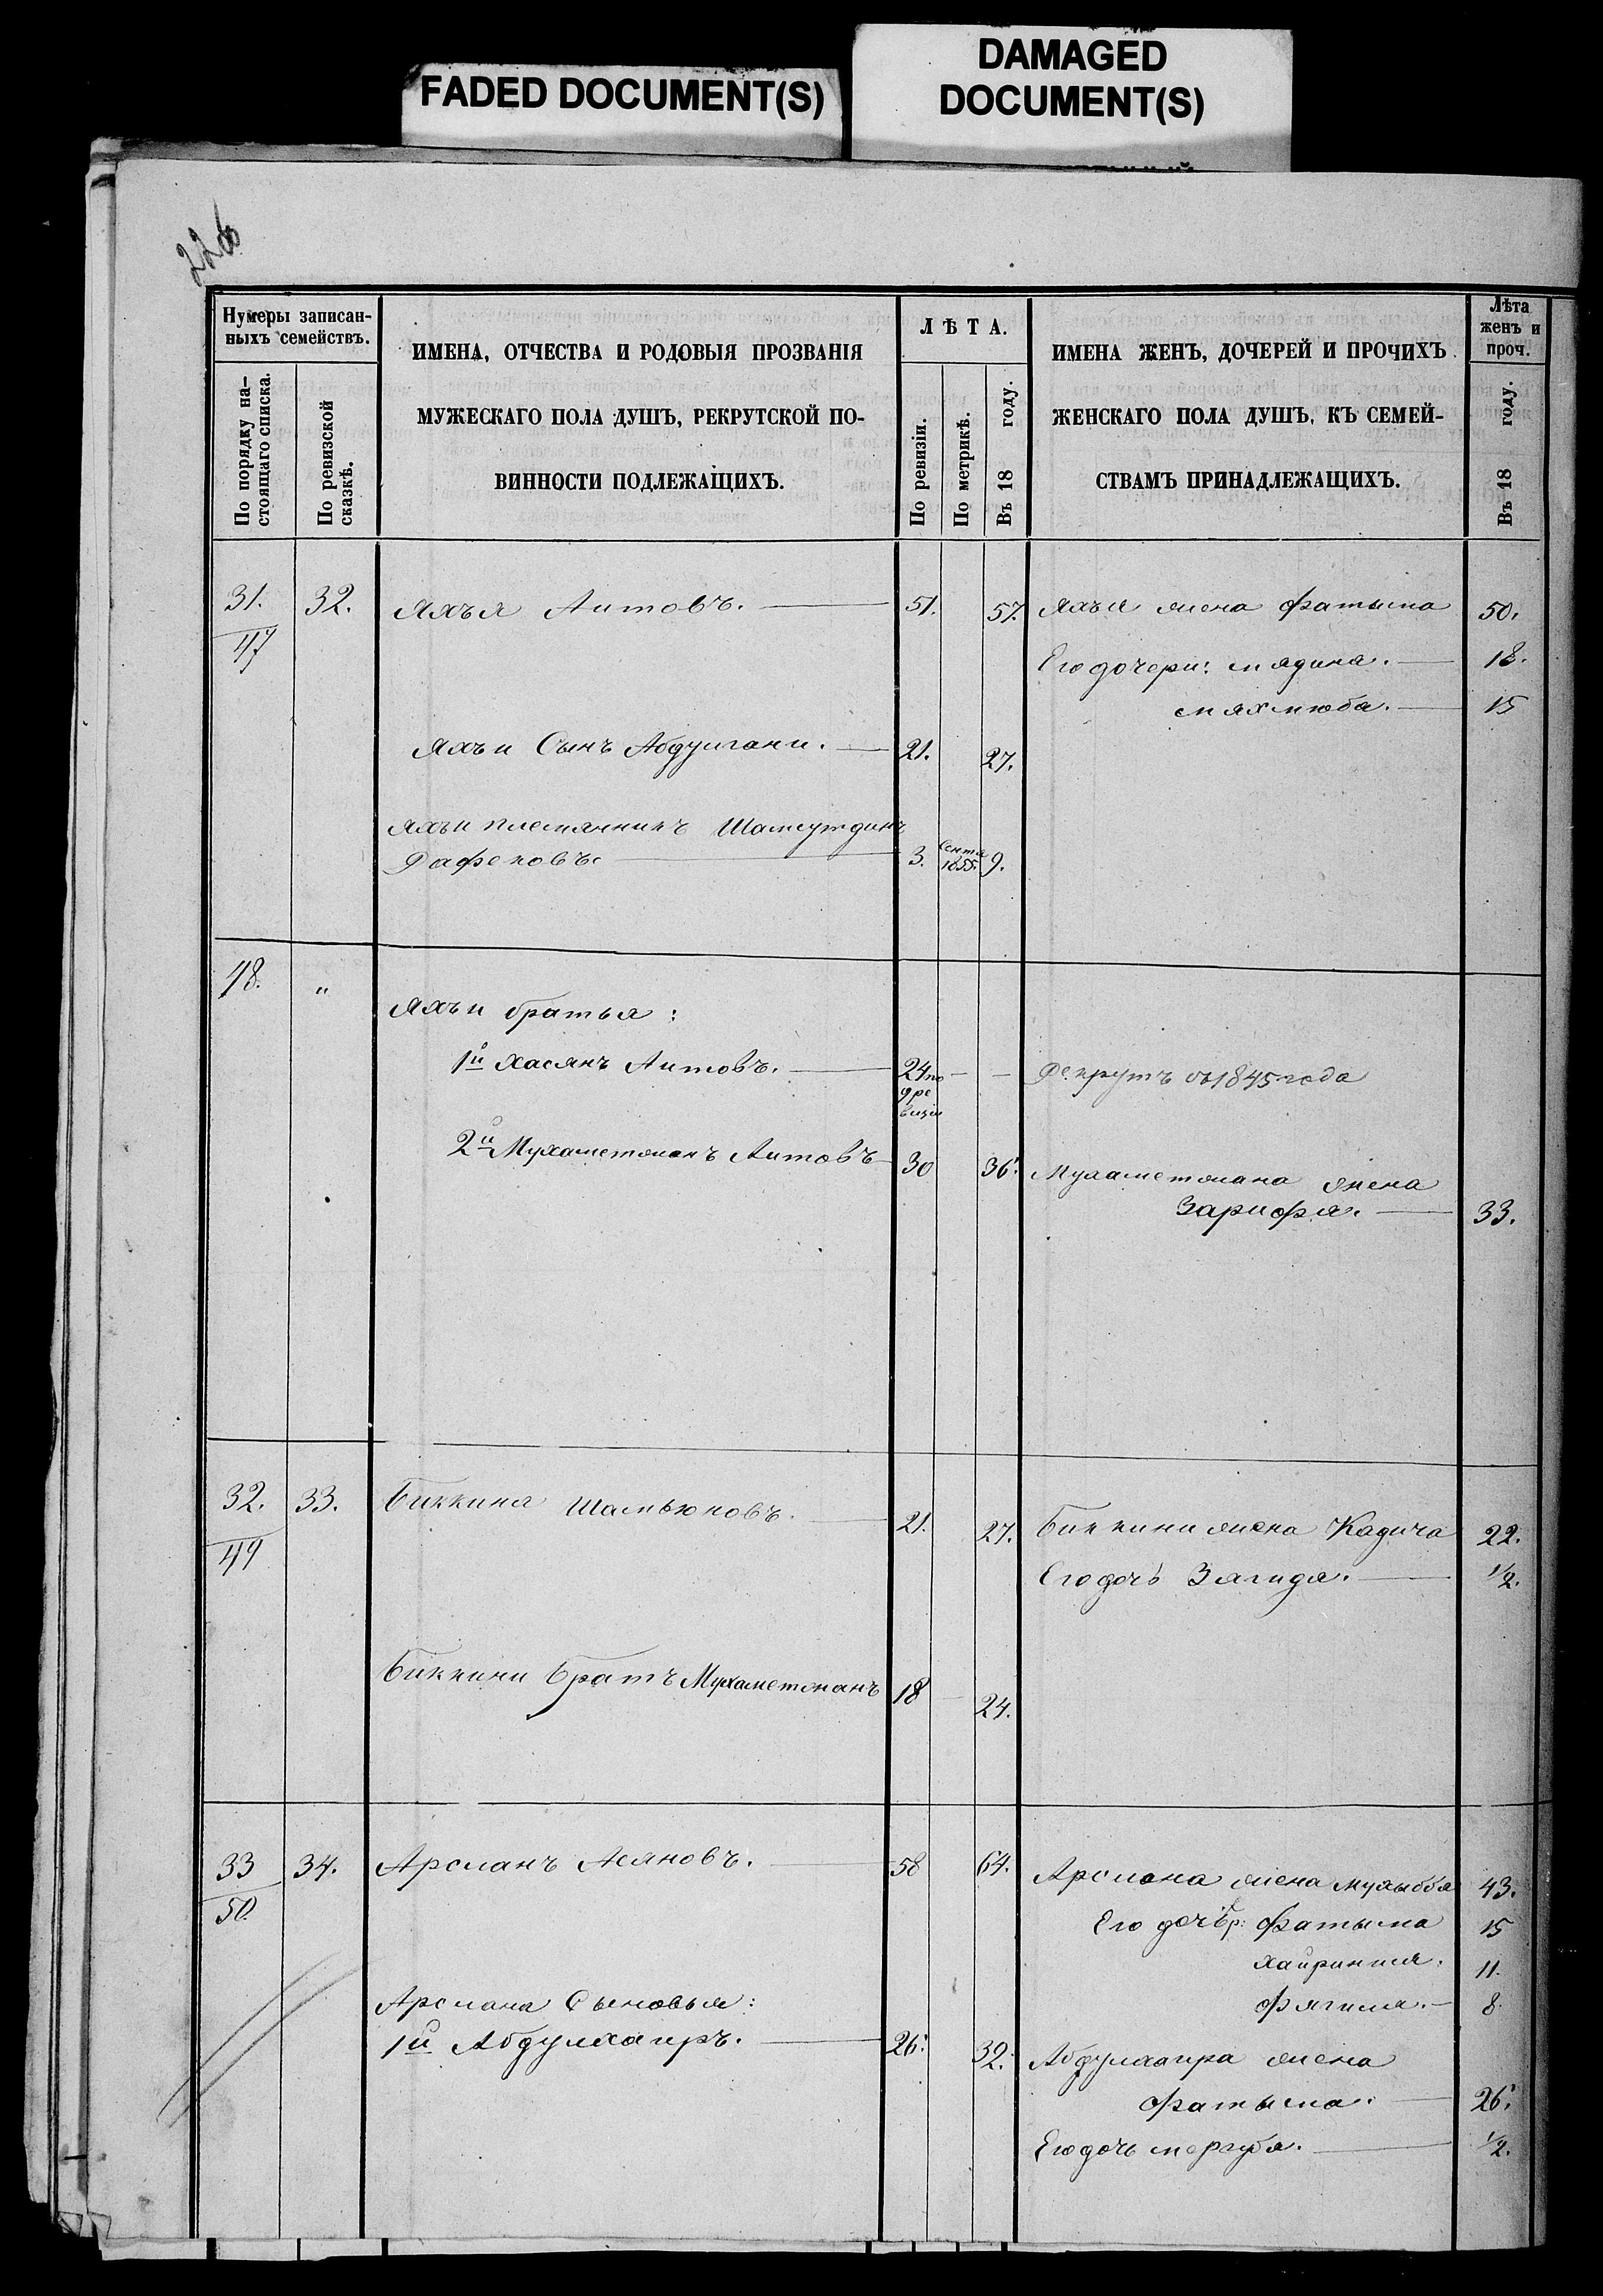 FADED DOCUMENT(S)
DAMAGED
DOCUMENT(S)
226
Нумеры записан-
ныхъ семействъ.
По порядку на-
стоящаго списка.
По ревизской
сказкѣ.
ИМЕНА, ОТЧЕСТВА И РОДОВЫЯ ПРОЗВАНІЯ
МУЖЕСКАГО ПОЛА ДУШЪ, РЕКРУТСКОЙ ПО-
ВИННОСТИ ПОДЛЕЖАЩИХЪ.
ЛѢТА.
По ревизіи.
По метрикѣ.
Въ 18 году.
ИМЕНА ЖЕНЪ, ДОЧЕРЕЙ И ПРОЧИХЪ
ЖЕНСКАГО ПОЛА ДУШЪ, КЪ СЕМЕЙ-
СТВАМЪ ПРИНАДЛЕЖАЩИХЪ.
Лѣта
женъ и
проч.
Въ 18 году.
31. 32. Яхъя Аитовъ. 51. 57. Яхъи жена Фатыма 50.
47
Его дочери: Мядина. 18.
Мяхмюба. 15
Яхъи Сынъ Абдулгани. 21. 27.
Яхъи племянникъ Шамсутдинъ
Рафековъ 3. Сентя 1855. 9.
48. "
Яхъи братья:
1й Хасянъ Аитовъ. 24 по 9 ре визіи — — Рекрутъ съ 1845 года
2й Мухаметжанъ Аитовъ 30 36. Мухаметжана жена
Зарифя. 33.
32. 33. Биккиня Шамьюновъ. 21. 27. Биккини жена Кадича 22.
49
Его дочь Зягидя. 1/2.
Биккини братъ Мухаметжанъ 18 24.
33 34. Арсланъ Асяновъ. 58 64. Арслана жена Мухыббя 43.
50.
Его дочер: Фатыма 15
Хайринися. 11.
Арслана Сыновья:
Фягиля. 8.
1й Абдулхаиръ. 26. 32. Абдулхаира жена
Фатыма. 26.
Его дочь Моргубя. 1/2.